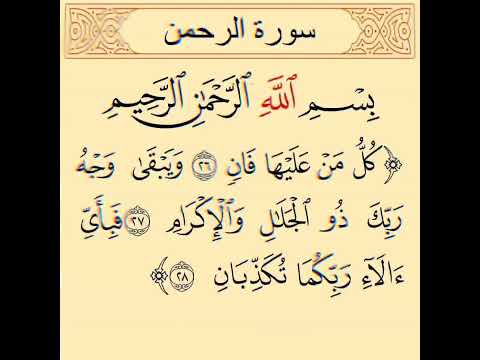 سورة الرحمن
بِسْمِ ٱللَّهِ ٱلرَّحْمَٰنِ ٱلرَّحِيمِ
﴿كُلُّ مَنْ عَلَيْهَا فَانٍ ٢٦ وَيَبْقَىٰ وَجْهُ
رَبِّكَ ذُو ٱلْجَلَٰلِ وَٱلْإِكْرَامِ ٢٧ فَبِأَىِّ
ءَالَآءِ رَبِّكُمَا تُكَذِّبَانِ ٢٨﴾